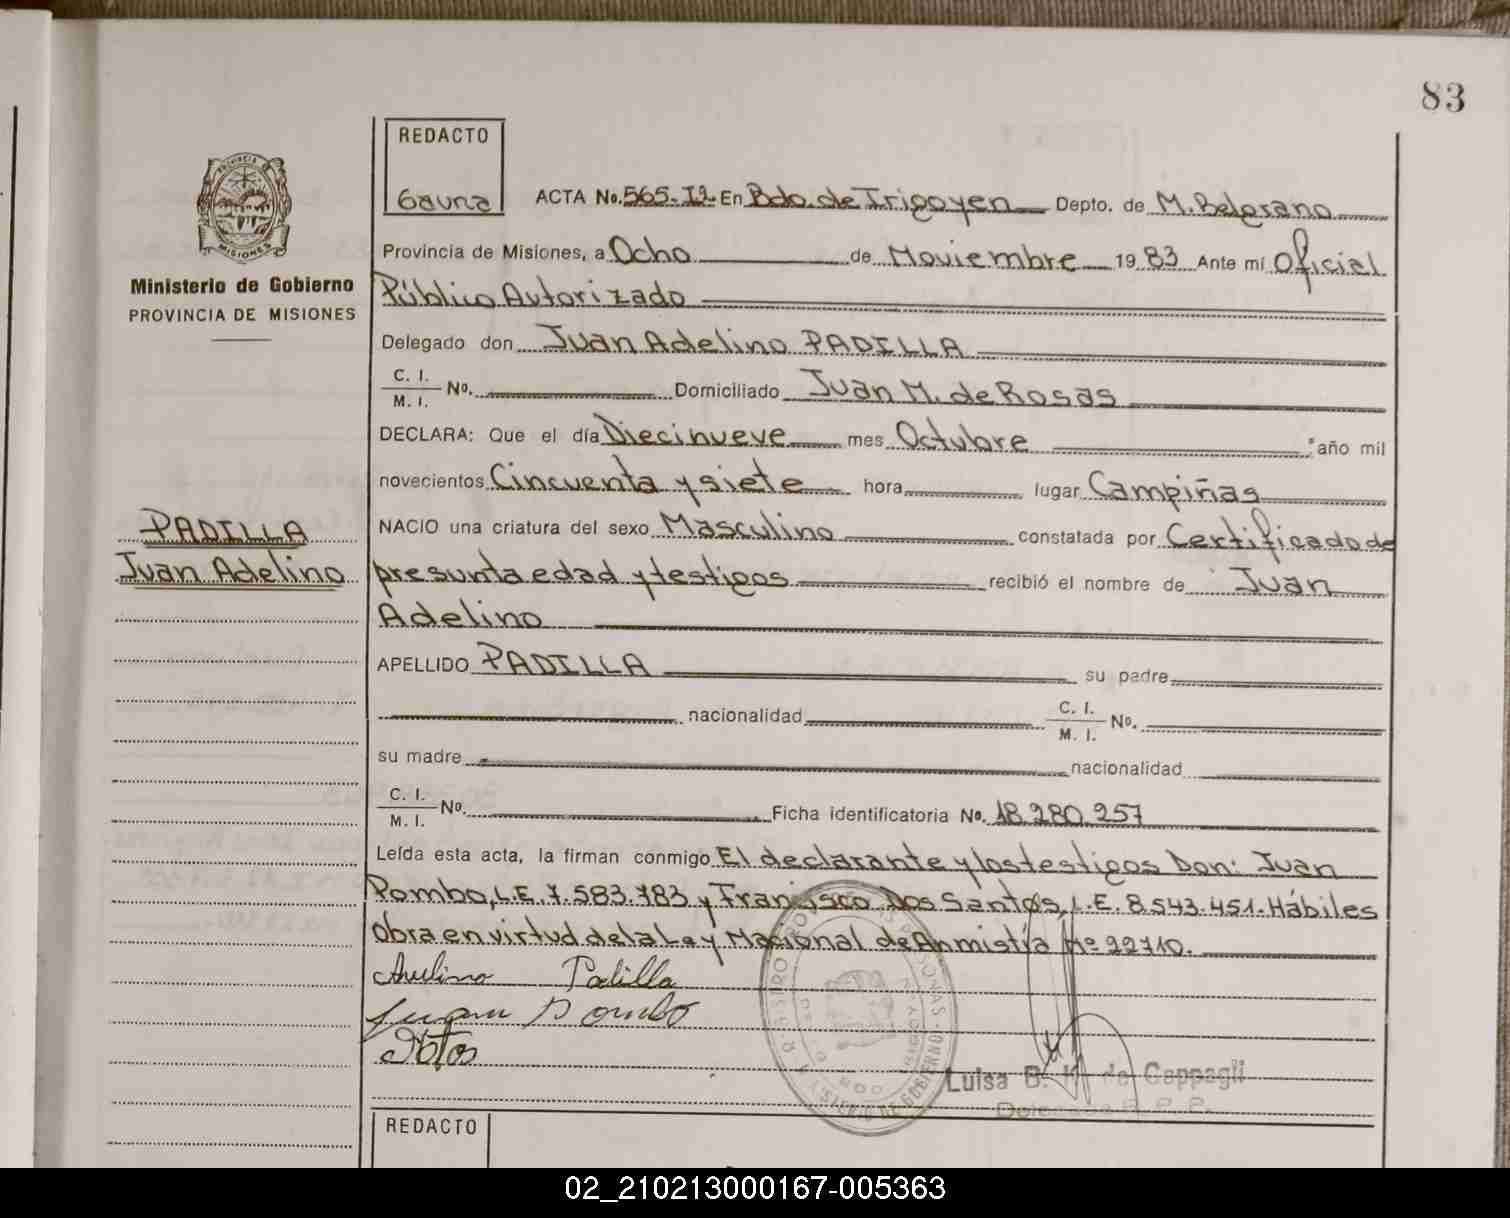 83
REDACTO
Gauna
ACTA No. 565-Iª En Bdo. de Irigoyen Depto. de M. Belgrano
Provincia de Misiones, a Ocho de Noviembre 1983 Ante mí Oficial
Público Autorizado
Delegado don Juan Adelino PADILLA
C. I.
M. I. No. Domiciliado Juan M. de Rosas
DECLARA: Que el día Diecinueve mes Octubre año mil
novecientos Cincuenta y siete hora lugar Campiñas
NACIO una criatura del sexo Masculino constatada por Certificado de
presunta edad y testigos recibió el nombre de Juan
Adelino
APELLIDO PADILLA su padre
nacionalidad C. I.
M. I. No.
su madre nacionalidad
C. I.
M. I. No. Ficha identificatoria No. 18.280.257
Leída esta acta, la firman conmigo El declarante y los testigos Don: Juan
Pombo, L.E. 7.583.783 y Francisco Dos Santos, L.E. 8.543.451. Hábiles
Obra en virtud de la Ley Nacional de Anmistía Nº 22710.
Avelino Padilla
Juan Pombo
Luisa B. K. de Cappagli
Delegada R. P. P.
PROVINCIA DE
MISIONES
Ministerio de Gobierno
PROVINCIA DE MISIONES
PADILLA
Juan Adelino
REDACTO
02_210213000167-005363